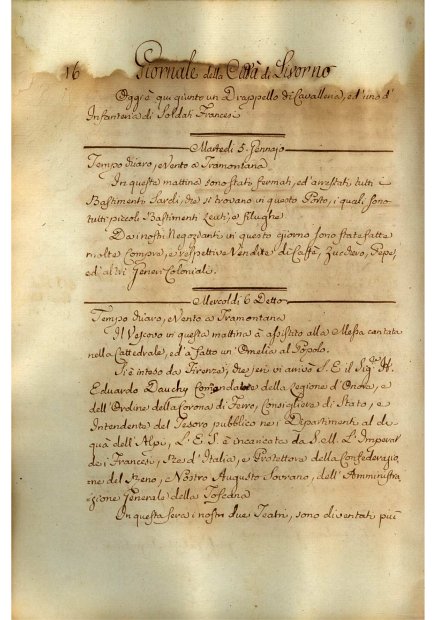 16 Giornale della Città di Livorno
Oggi è qui giunto un Drappello di Cavalleria, ed'uno d'
Infanteria di Soldati Francesi
Martedì 5. Gennajo
Tempo chiaro, e Vento a Tramontana
In questa mattina sono stati fermati, ed'arrestati tutti i
Bastimenti Sardi, che si trovano in questo Porto, i quali sono
tutti piccoli Bastimenti Leuti, e filughe
Dai nostri Negozianti in questo giorno sono state fatte
molte Compre, e respettive Vendite di Caffè, Zucchero, Pepe,
ed'altri Generi Coloniali.
Mercoldì 6 Detto
Tempo chiaro, e Vento a Tramontana
Il Vescovo in questa mattina à assistito alla Messa cantata
nella Cattedrale, ed'à fatto un'Omelia al Popolo.
Si è inteso da Firenze, che jeri vi arrivò S. E. il Sigre H.
Eduardo Dauchy Comandante della Legione d'Onore, e
dell'Ordine della Corona di Ferro, Consigliere di Stato, e
Intendente del Tesoro pubblico nei Dipartimenti al di
quà dell'Alpi, L'E. S. è incaricata da S. M. L'Imperat
dei Francesi, Re d'Italia, e Protettore della Confederazio
ne del Reno, e Nostro Augusto Sovrano, dell'Amministra
zione Generale della Toscana
In questa sera i nostri due Teatri, sono diventati più